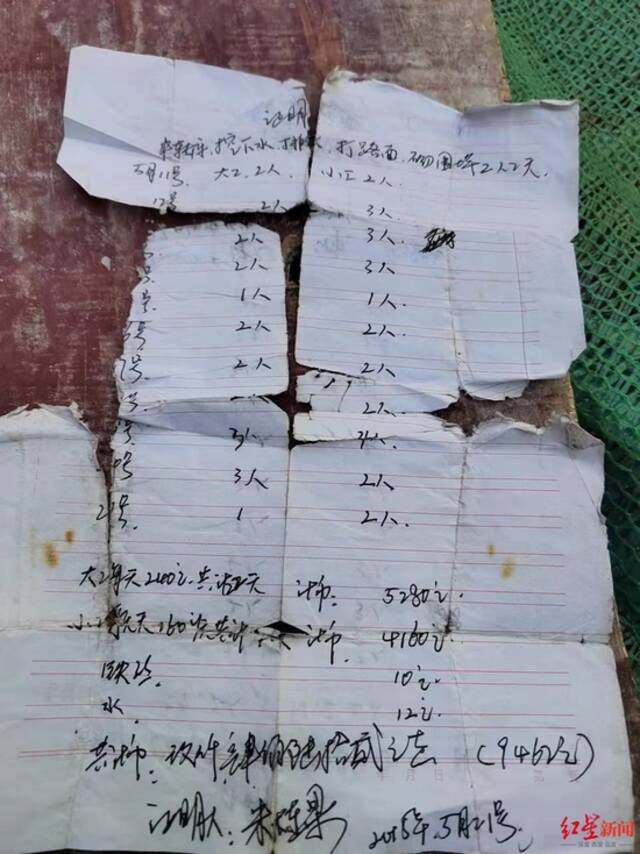 证明
车库, 挖下水, 排水, 打路面, 砌围墙2人2天
5月11号 大工 2人 小工 2人
12号 2人 3人
号 2人 3人
号 2人 3人
号 1人 1人
号 2人 2人
号 2人 2人
号 2人
号 3人 3人
号 3人 2人
21号 1 2人
大工每天240元 共计22天 计币 5280元
小工每天160元 共计 天 计币 4160元
10元
水 12元
共币: 玖仟肆佰陆拾贰元 (9462元)
年 月 日
证明人: 朱 2015年5月21号
红星新闻